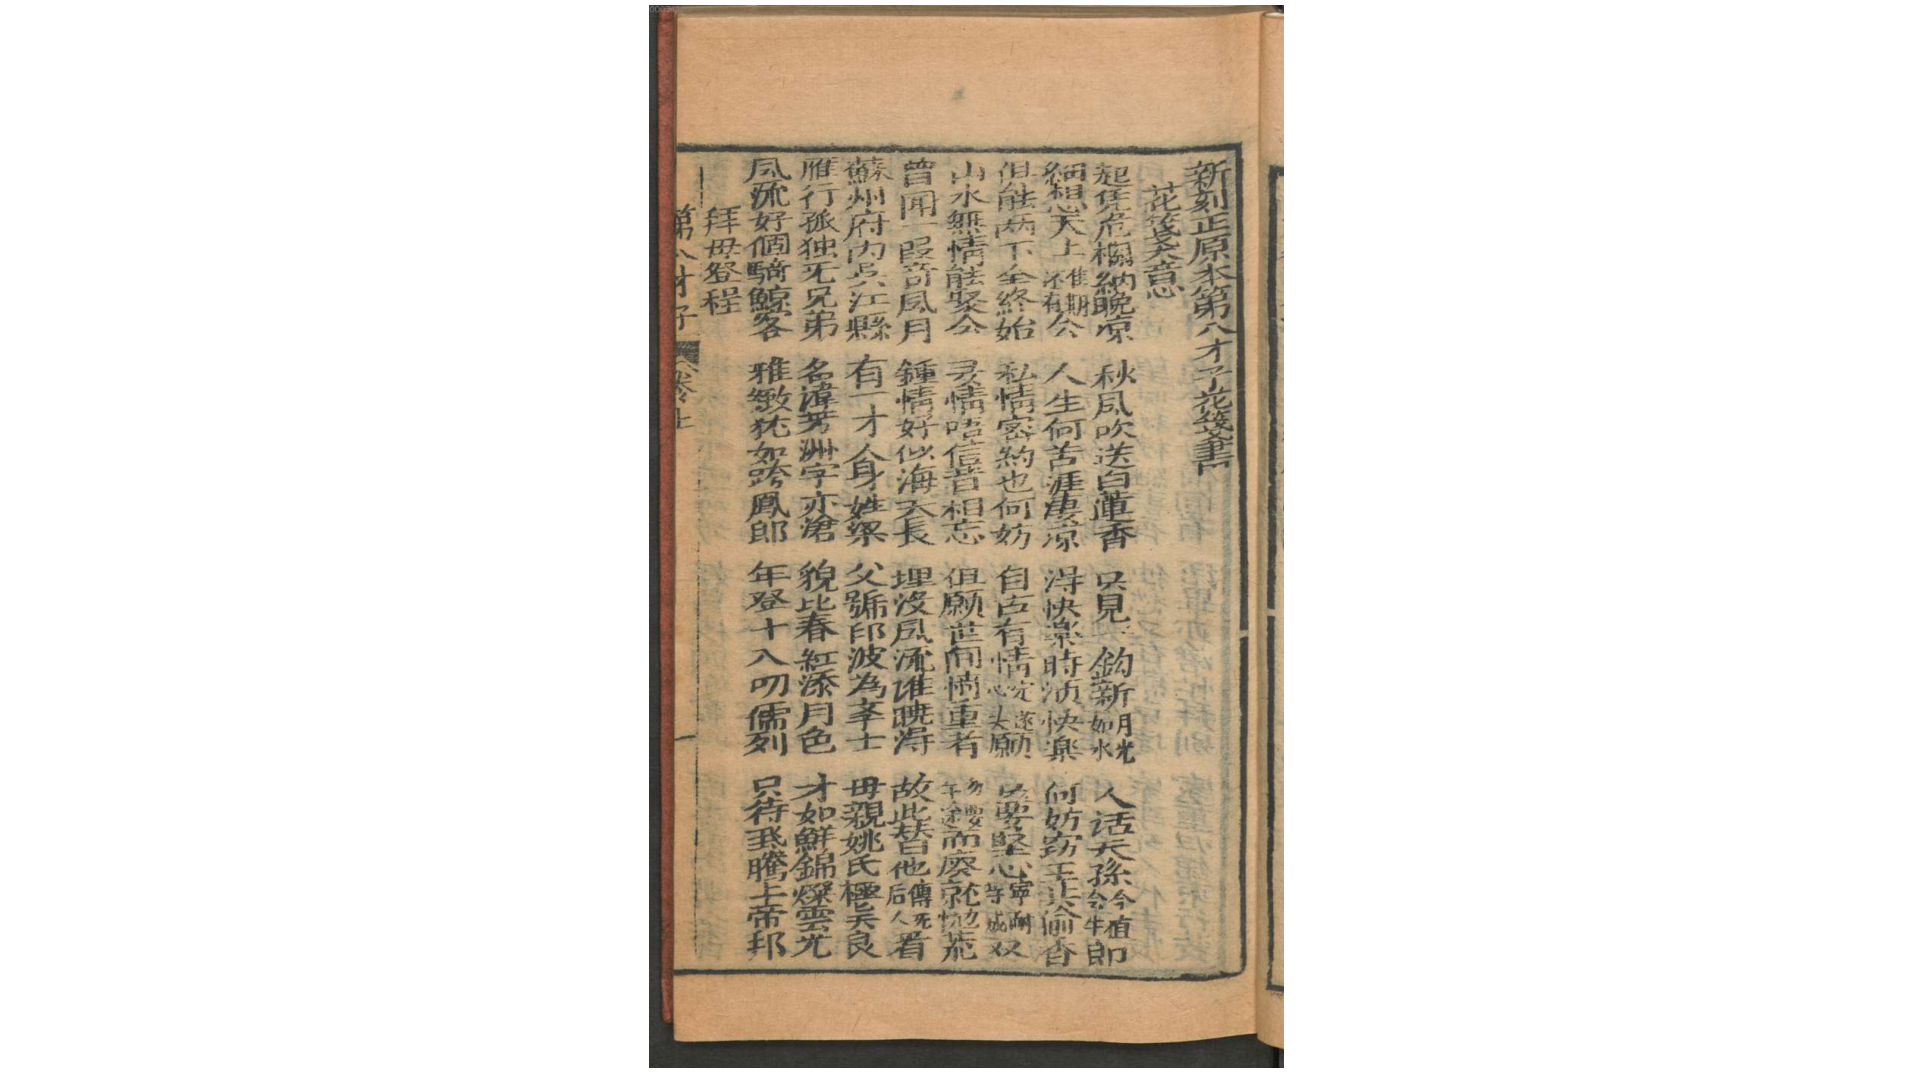 新刻正原本第八才子花箋書
花箋大意
起凭危欄納晚凉 秋風吹送白蓮香 只見一鈎新月光如水 人話天孫今夕會牛郎
細想天上佳期还有会 人生何苦捱凄凉 得快樂時湏快樂 何妨窃玉共偷香
但能两下全終始 私情密約也何妨 自古有情定遂心頭願 只要坚心寧耐等成双
山水無情能聚会 多情唔信肯相忘 但願世间情重者 勿要年途而廢就荒
曾闻一段奇風月 鍾情好似海天長 埋没風流谁曉得 故此替他傳死后人看
蘇州府内吴江縣 有一才人身姓梁 父號印波為孝士 母親姚氏極美良
雁行孤独无兄弟 名瑋芳洲字亦滄 貌比春紅添月色 才如鮮錦燦雲光
風流好個騎鯨客 雅緻犹如跨鳳郎 年登十八叨儒列 只待飛騰上帝邦
拜母登程
第八才子 卷上 一